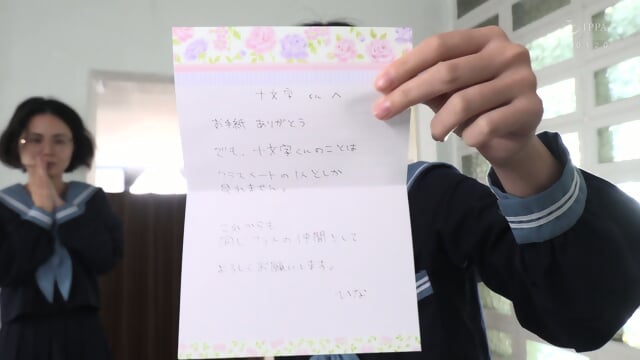 十文字くんへ
お手紙 ありがとう
でも、十文字くんのことは
クラスメートの1人としか
見れません。
これからも
同じクラスの仲間として
よろしくお願いします。
いな
IPPA